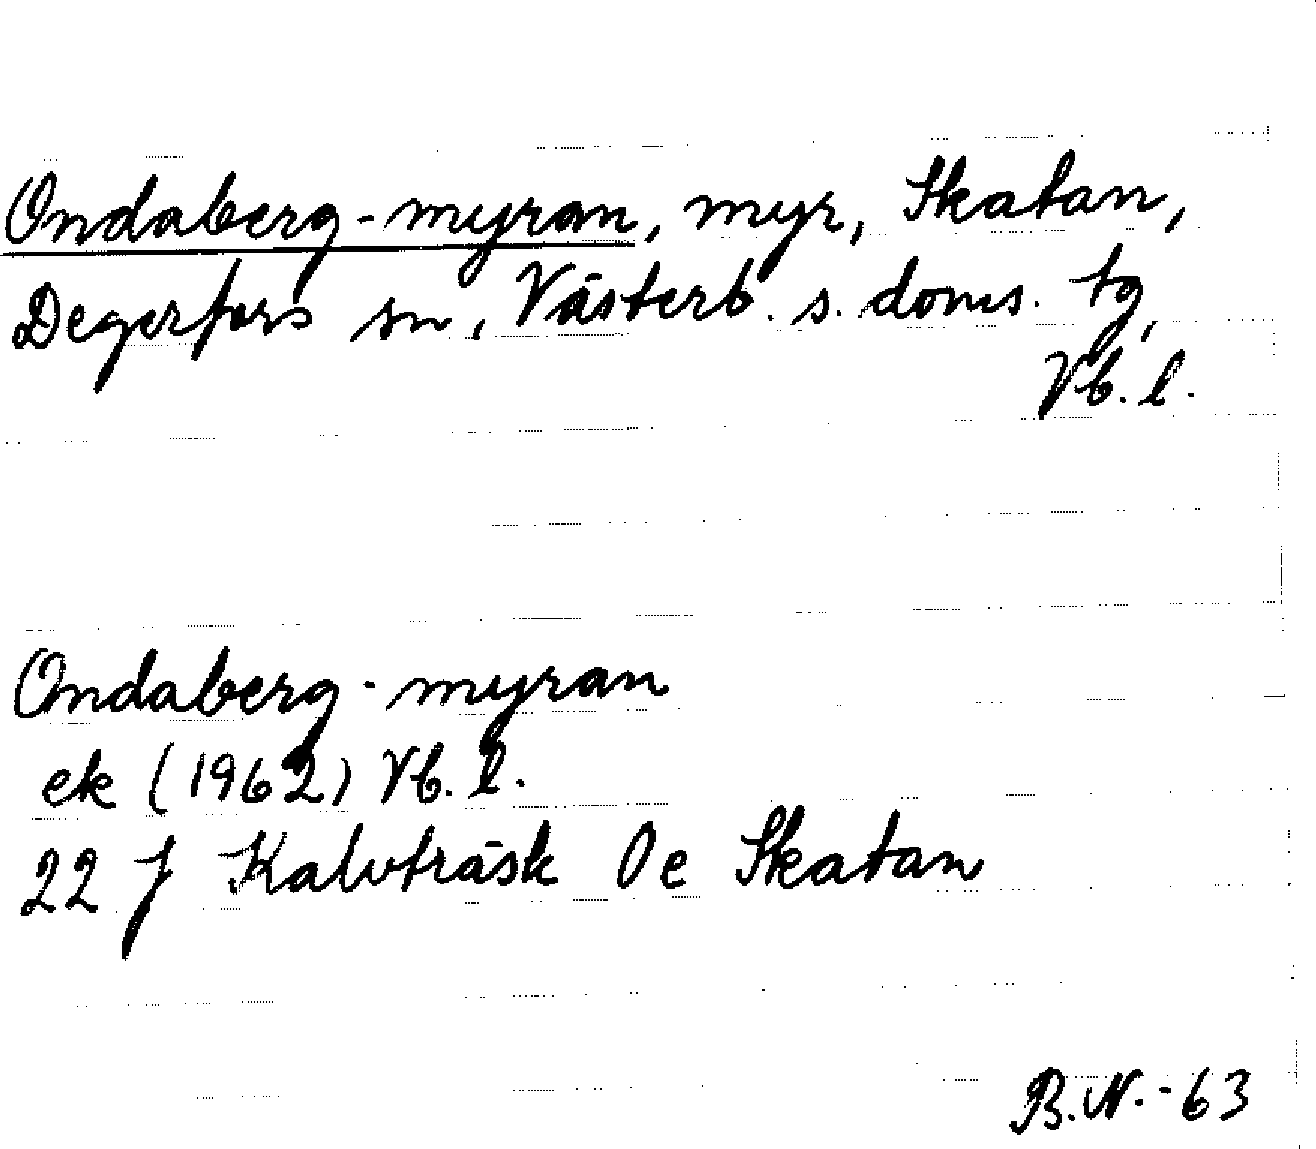 Ondaberg-myran, myr, Skatan,
Degerfors sn, Västerb. s. doms. tg,
Vb. l.
Ondaberg-myran
ek (1962) Vb. l.
22 J Kalvträsk 0e Skatan
B.N.-63